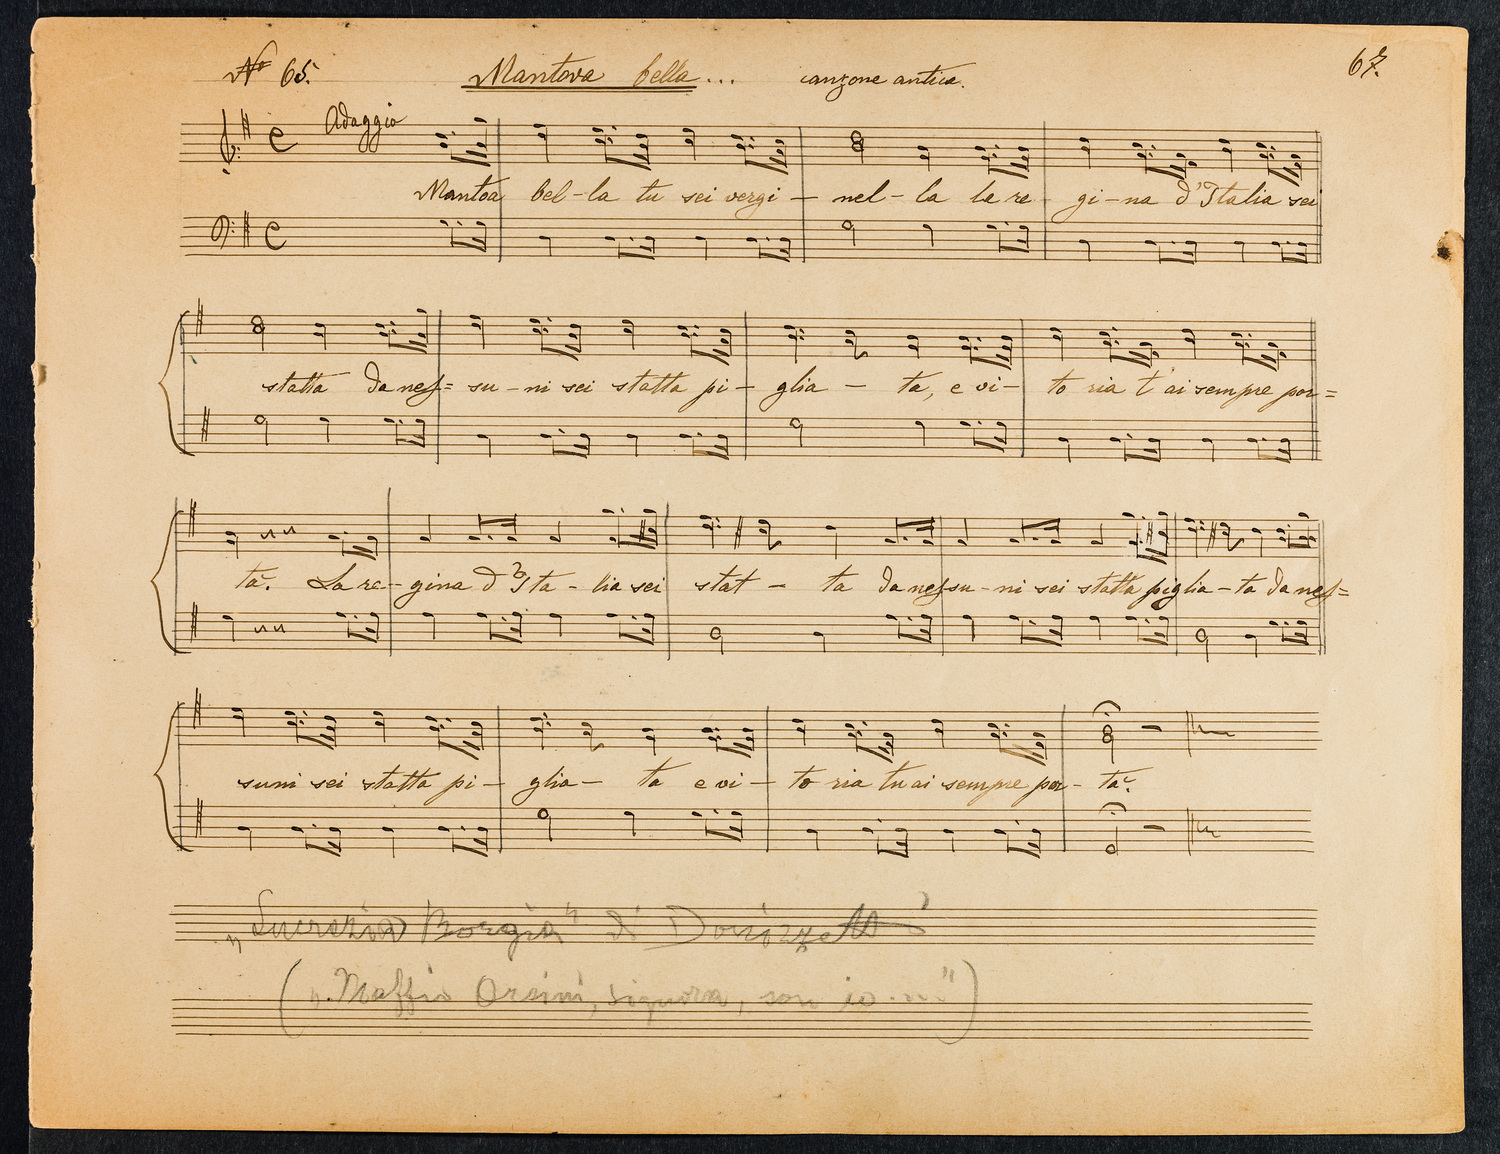 No 65. Mantova bella... canzone antica. 67.
Adaggio
Mantoa bel-la tu sei vergi-nel-la la re-gi-na d'Italia sei
statta da nes=su-ni sei statta pi-glia-ta, e vi-to ria t'ai sempre por=
ta. La re-gina d'Ita-lia sei stat-ta da nessu-ni sei statta piglia-ta da nes=
suni sei statta pi-glia-ta e vi-to ria tu ai sempre por-ta.
„Lucrezia Borgia" di Donizzetti
(„Maffio Orsini, signora, son io...")